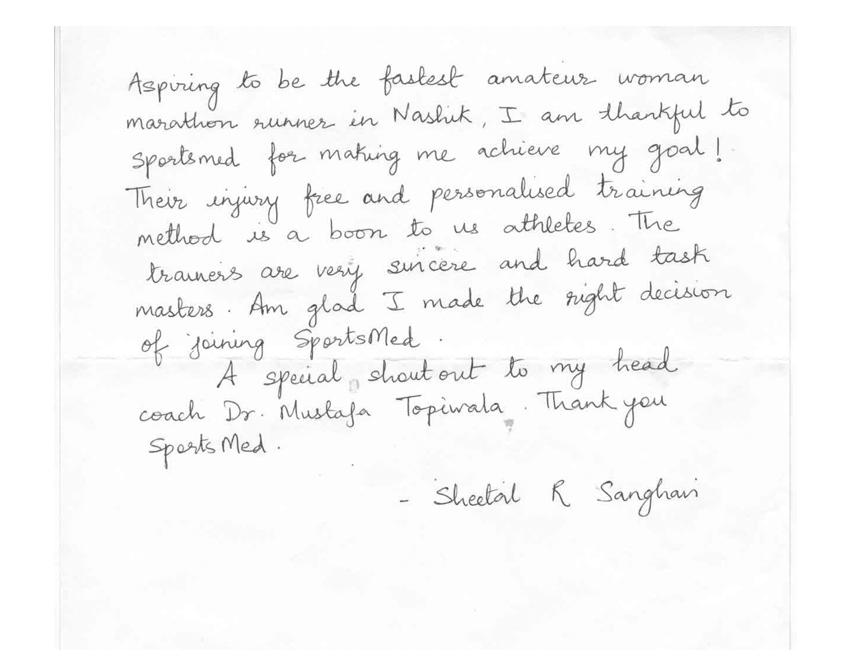 Aspiring to be the fastest amateur woman
marathon runner in Nashik, I am thankful to
Sportsmed for making me achieve my goal!
Their injury free and personalised training
method is a boon to us athletes. The
trainers are very sincere and hard task
masters. Am glad I made the right decision
of joining SportsMed.
A special shout out to my head
coach Dr. Mustafa Topiwala. Thank you
SportsMed.
- Sheetal R Sanghavi